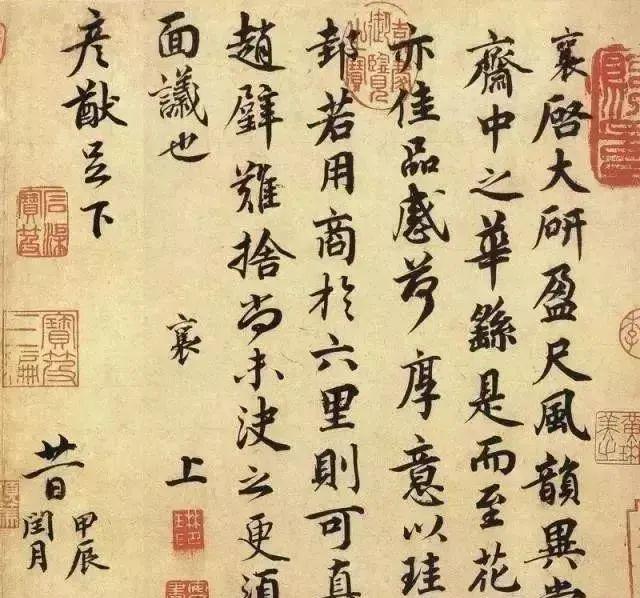 襄啓大研盈尺風韻異常
齋中之華繇是而至花
亦佳品感荷厚意以珪
邽若用商於六里則可真
趙璧難捨尚未決之更須
面議也 襄 上
彥猷足下
廿一日
甲辰
閏月